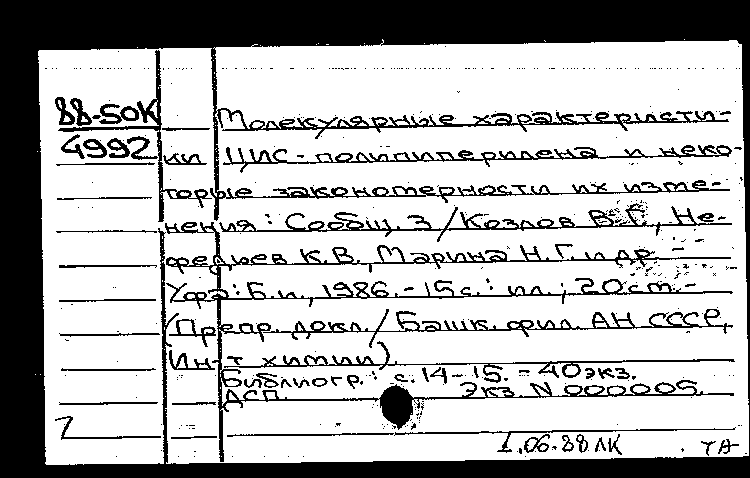 88-50К
4992
Молекулярные характеристи-
ки ЦИС-полипиперилена и неко-
торые закономерности их изме-
нения: Сообщ. 3/Козлов В.Г., Не-
федьев К.В., Марина Н.Г. и др. -
Уфа: Б.и., 1986. - 15с.: ил.; 20см. -
(Препр. докл./Башк. фил. АН СССР,
Ин-т химии).
Библиогр.: с. 14-15. - 40экз.
ДСП. Экз. N 000005.
1.06.88 ЛК